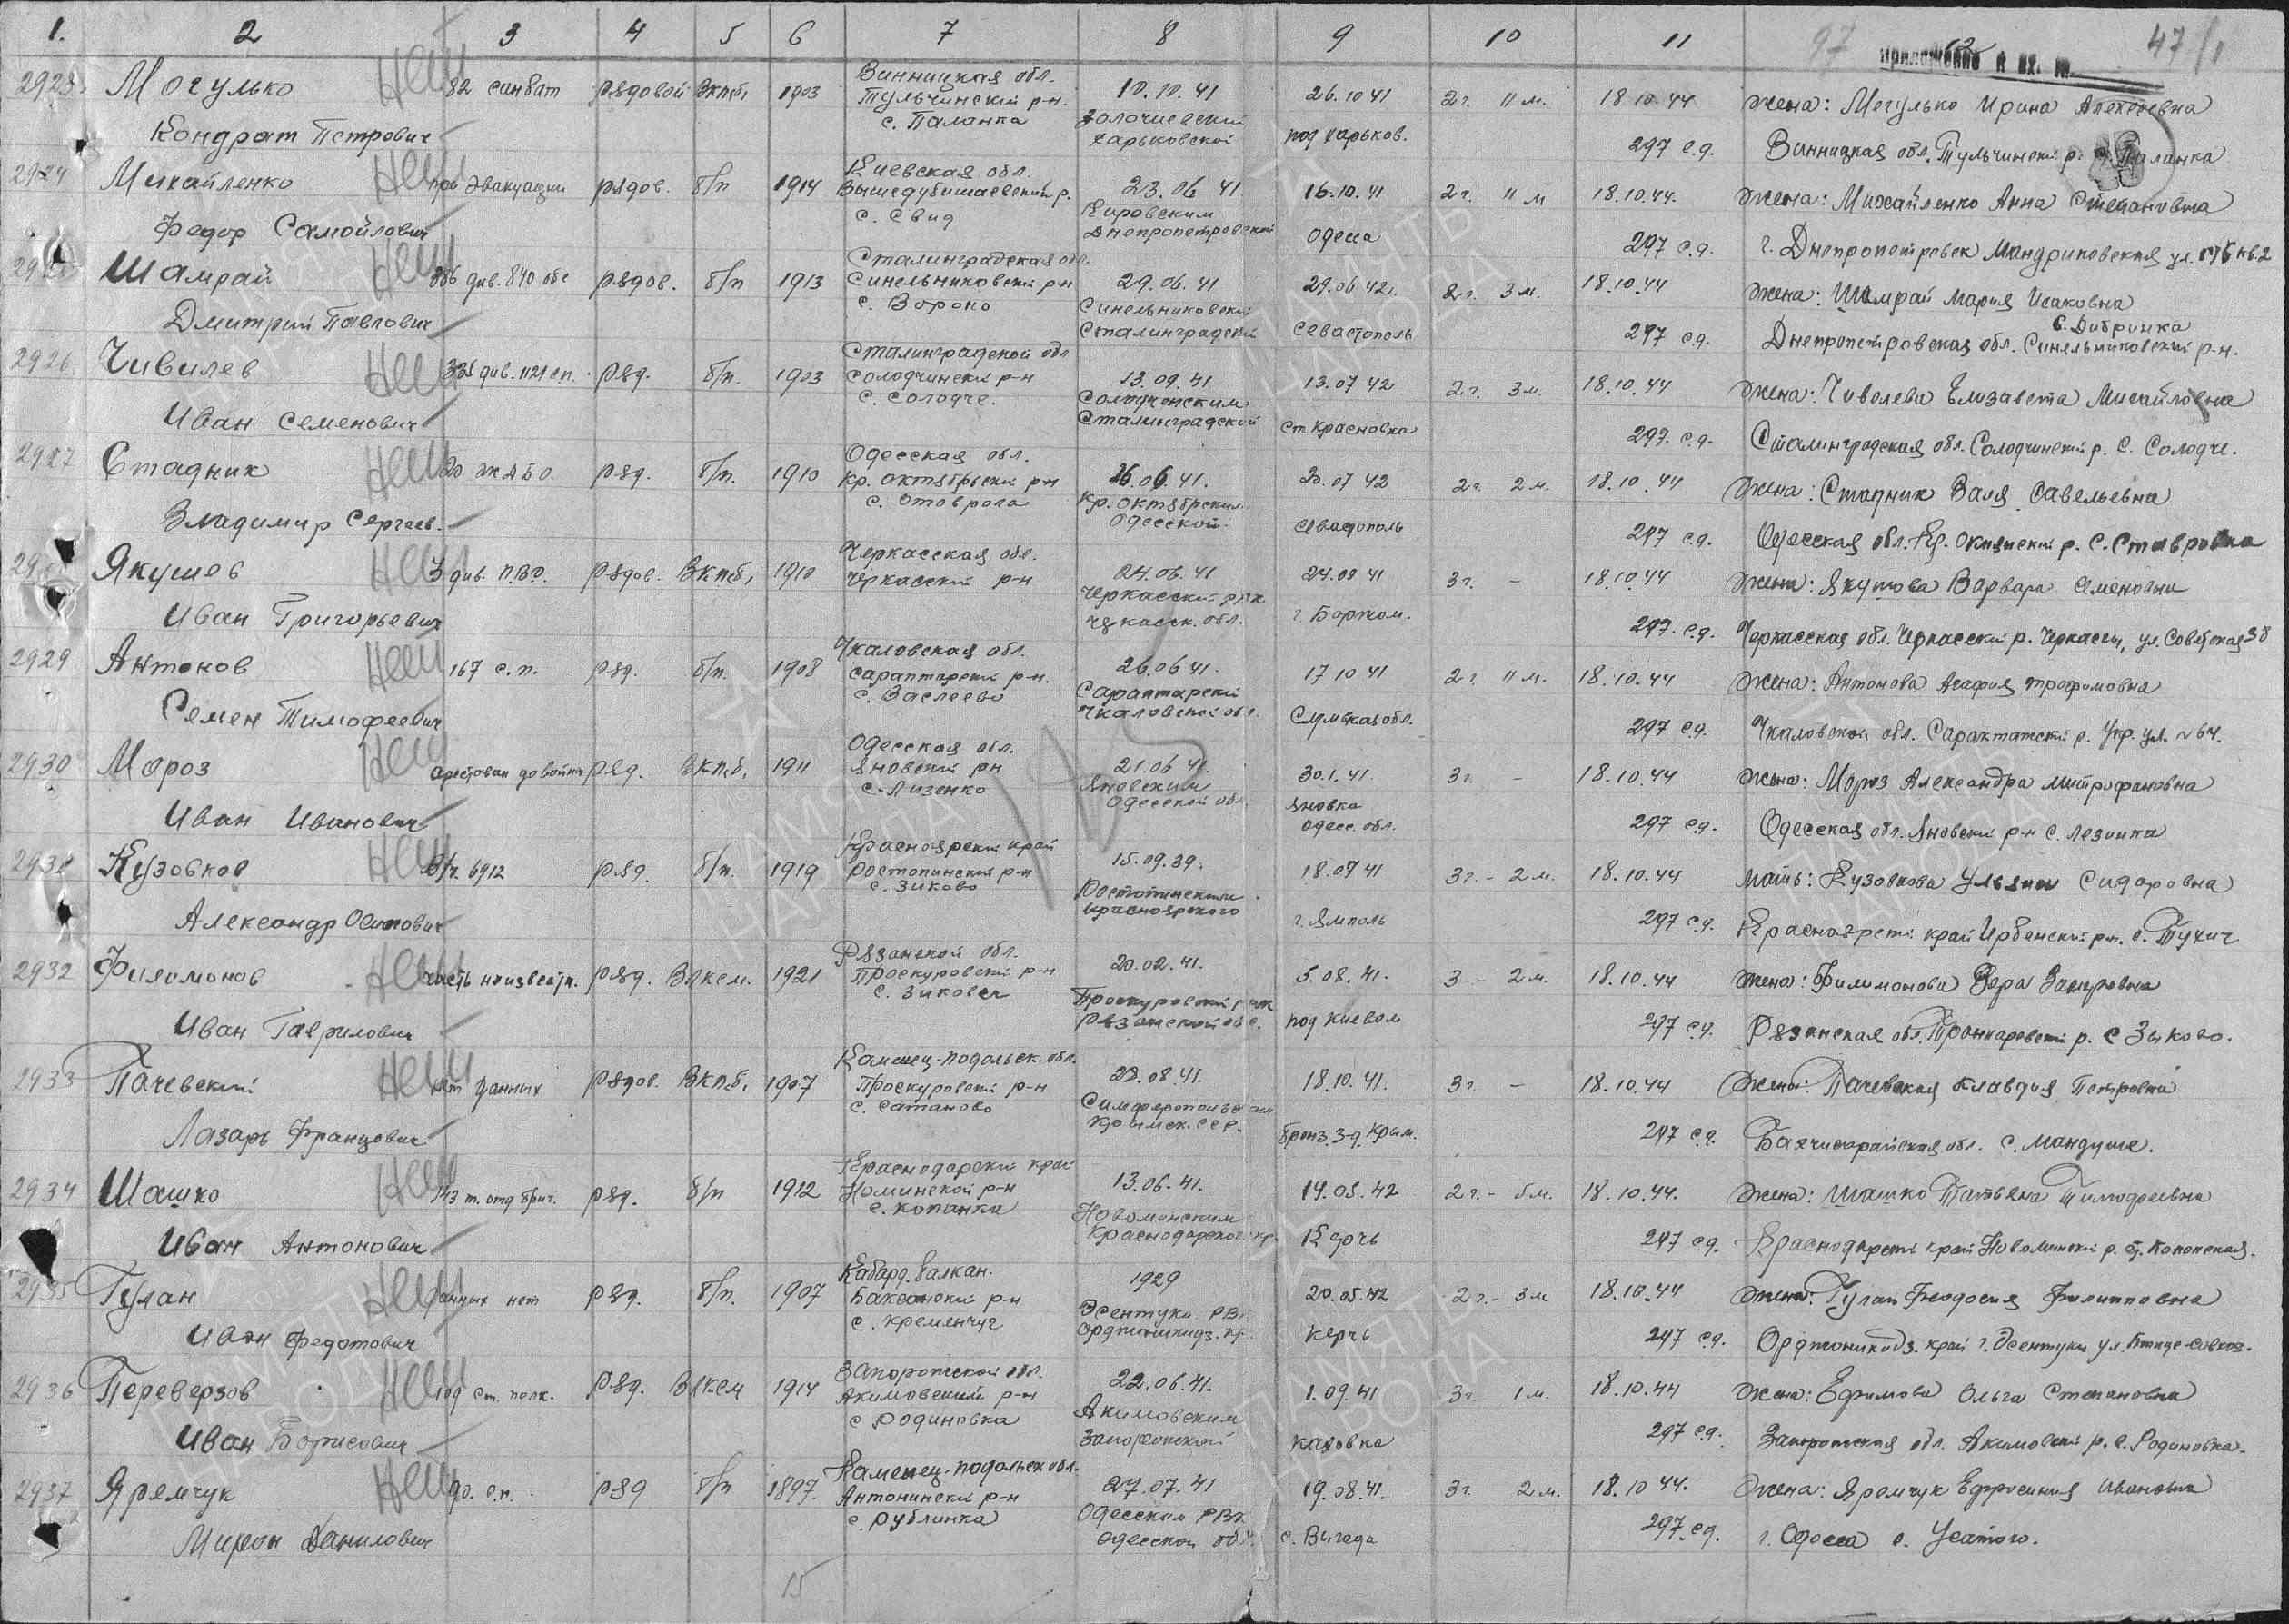 1. 2 3 4 5 6 7 8 9 10 11 12
97 47
Приложение к вх. №
2923 Могулько нет 82 санбат рядовой ВКПб, 1903 Винницкая обл. Тульчинский р-н. с. Паланка 10.10.41 Золочиевский Харьковской 26.10 41 под Харьков. 2 г. 11 м. 18.10.44 297 с.д. жена: Могулько Ирина Алексеевна
Кондрат Петрович Винницкая обл. Тульчинский р. с. Паланка
2924 Михайленко нет при эвакуации рядов. б/п 1914 Киевская обл. с. Свид 23.06 41 Кировским Днепропетровской 16.10.41 Одесса 2 г. 11 м 18.10.44. 297 с.д. жена: Михайленко Анна Степановна
Федор Самойлович г. Днепропетровск Мандриковская ул. кв. 2
Шамрай нет див. 840 рядов. б/п 1913 Сталинградская обл. Синельниковский р-н с. Вороно 29.06.41 Синельниковский Сталинградской 29.06 42. Севастополь 2 г. 3 м. 18.10.44 297 с.д. жена: Шамрай Мария Исаковна
Дмитрий Павлович Днепропетровская обл. Синельниковский р-н. с. Дибринка
2926 Чивилев нет див. 1121 с.п. ряд. б/п. 1903 Сталинградской обл Солодчинский р-н с. Солодче. 13.09.41 Солодченским Сталинградской 13.07 42 ст Красновка 2 г. 3 м. 18.10.44 297. с.д. жена: Чиволева Елизавета Михайловна
Иван Семенович Сталинградская обл. Солодчинский р. с. Солодче.
2927 Стадник нет ряд. б/п. 1910 Одесская обл. Кр. Октябрьский р-н с. Отоврога 26.06.41. Кр. Октябрским Одесской. 20.07 42 Севастополь 2 г. 2 м. 18.10.44 297 с.д. жена: Стадник Валя Савельевна
Владимир Сергеев. Одесская обл. Кр. Окнянский р. с. Ставровка
Якушев нет 3 див. П.В.О. рядов. ВКПб, 1910 Черкасская обл. Черкасский р-н 24.06.41 Черкасский рвк Черкасск. обл. 24.08 41 г. Боржом. 3 г. - 18.10.44 297. с.д. жена: Якушова Варвара Семеновна
Иван Григорьевич Черкасская обл. Черкасский р. Черкассы, ул. Советская 38
2929 Антонов нет 167 с.п. ряд. б/п. 1908 Чкаловская обл. Сараптарский р-н. с. Васлеево 26.06 41. Сараптарский Чкаловской обл. 17 10 41 Сумская обл. 2 г. 11 м. 18.10.44 297 с.д. жена: Антонова Агафия Трофимовна
Семен Тимофеевич Чкаловской обл. Сарактатский р. Укр. ул. №64.
2930 Мороз нет арестован до войны ряд. ВКПб, 1911 Одесская обл. Яновский р-н с. Лизенко 21.06 41. Яновским Одесской обл. 30.1.41. Яновка Одесс. обл. 3 г. - 18.10.44 297 с.д. жена: Мороз Александра Митрофановна
Иван Иванович Одесская обл. Яновский р-н с. Лезинка
2931 Кузовков нет в/ч. 6912 ряд. б/п. 1919 Красноярский край Ростопинский р-н с. Зиково 15.09.39. Ростопинским Красноярского 18.07 41 г. Ямполь 3 г. - 2 м. 18.10.44 297 с.д. мать: Кузовкова Ульяна Сидоровна
Александр Осипович Красноярский край Ирбенский р-н. с. Тухич
2932 Филомонов нет часть неизвестн. ряд. ВЛКСМ. 1921 Рязанской обл. Проскуровский р-н с. Зиковея 20.02.41. Проскуровский рвк Рязанской обл. 5.08.41. под Киевом 3 - 2 м. 18.10.44 297 с.д. жена: Филимонова Вера Захаровна
Иван Гаврилович Рязанская обл. Пронкаровский р. с Зыково.
2933 Пачевский нет нет данных рядов. ВКПб, 1907 Каменец-Подольск. обл. Проскуровский р-н с. Сатаново 23.08.41. Симферопольским Крымск. ССР. 18.10.41. Крым. 3 г. - 18.10.44 297 с.д. жена: Пачевская Клавдия Петровна
Лазарь Францович Бахчисарайская обл. с. Мандуше.
2934 Шашко нет ряд. б/п 1912 Краснодарский край Номинской р-н с. Копанка 13.06.41. Новоминским Краснодарского кр. 14.05.42 Керчь 2 г. - 5 м. 18.10.44. 297 с.д. жена: Шашко Татьяна Тимофеевна
Иван Антонович Краснодарский край Новоминский р. ст. Копонская.
2935 Гулан нет данных нет ряд. б/п. 1907 Кабард. Балкан. Баксанский р-н с. Кременчуг 1929 Эсентуки РВК Орджоникидз. кр. 20.05.42 Керчь 2 г. - 3 м 18.10.44 297 с.д. жена: Гулан Феодосия Филипповна
Иван Федотович Орджоникидз. край г. Эсентуки ул. Птице-совхоз.
2936 Переверзов нет 109 ст. полк. ряд. ВЛКСМ 1914 Запорожской обл. Акимовский р-н с Родиновка 22.06.41. Акимовским Запорожской 1.09.41 Каховка 3 г. 1 м. 18.10.44 297 с.д. жена: Ефимова Ольга Степановна
Иван Борисович Запорожская обл. Акимовский р. с. Родоновка.
2937 Яремчук нет ряд б/п 1897. Каменец-Подольск обл. Антонинский р-н с. Рублинка 27.07.41 Одесским РВК Одесской обл. 19.08.41. с. Выгода 3 г. 2 м. 18.10 44. 297. с.д. жена: Яремчук Ефросиния Ивановна
Мирон Данилович г. Одесса с. Усатого.
15
ПАМЯТЬ НАРОДА